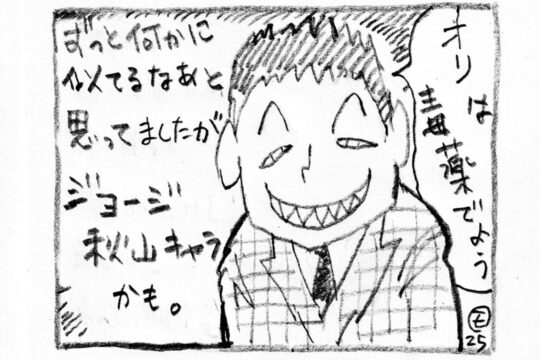 オリは
毒薬でよう
ずっと何かに
似てるなあと
思ってましたが
ジョージ
秋山キャラ
かも。
25